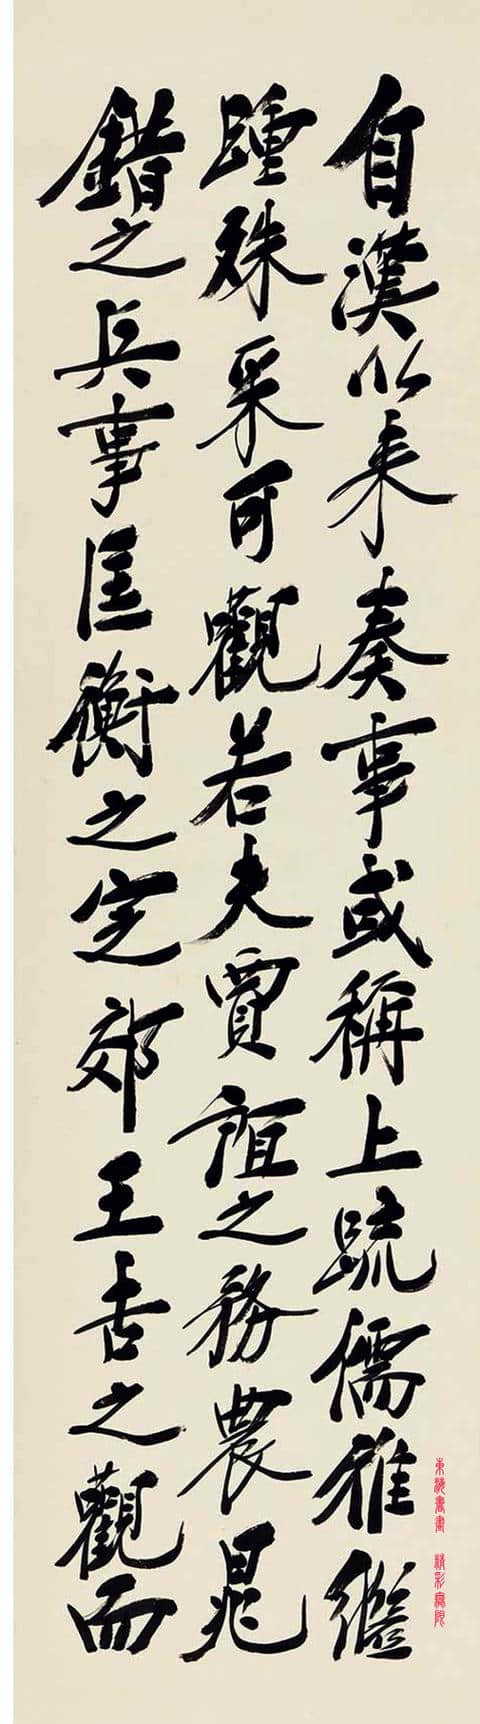 自漢以来奏事或稱上疏儒雅繼
踵殊采可觀若夫賈誼之務農晁
錯之兵事匡衡之定郊王吉之觀而